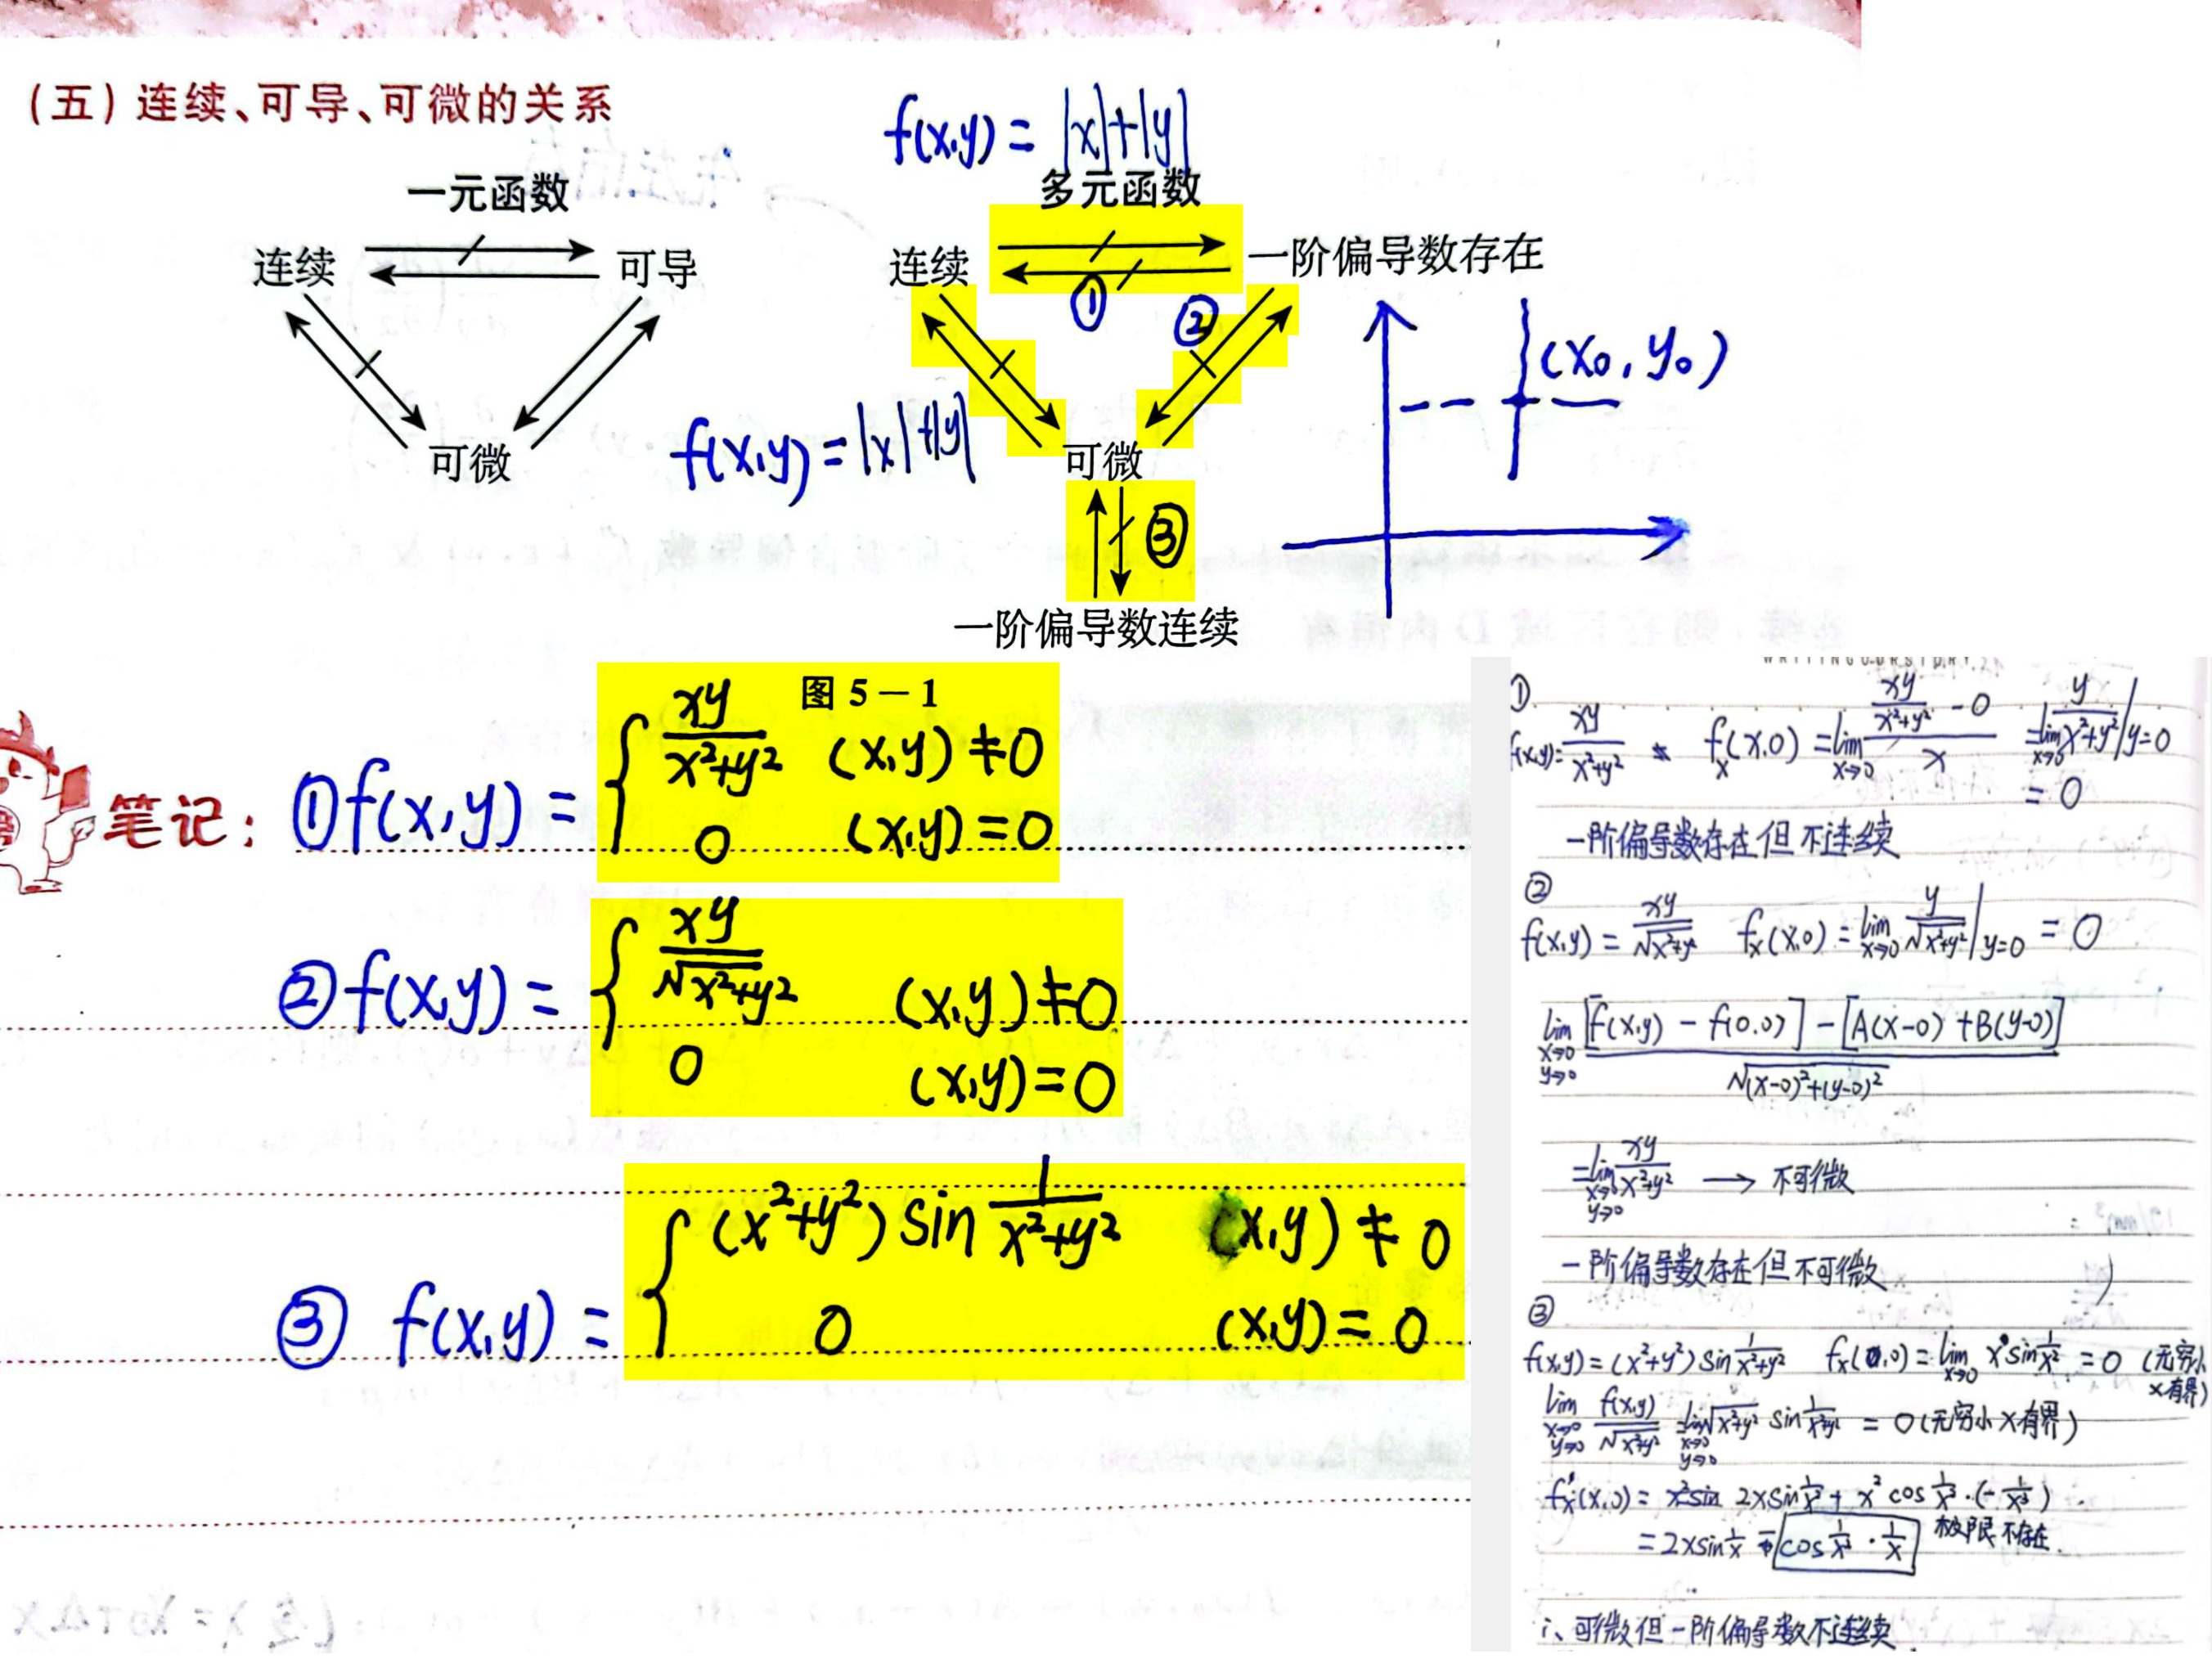 (五) 连续、可导、可微的关系
f(x,y) = |x|+|y|
一元函数
多元函数
连续 可导
连续 一阶偏导数存在
① ②
(x₀, y₀)
f(x,y) = |x|+|y|
可微
可微
③
一阶偏导数连续
图 5-1
笔记:
① f(x,y) = { xy/(x²+y²) (x,y)≠0
0 (x,y)=0
② f(x,y) = { xy/√(x²+y²) (x,y)≠0
0 (x,y)=0
③ f(x,y) = { (x²+y²) sin 1/(x²+y²) (x,y)≠0
0 (x,y)=0
①
f(x,y)= xy/(x²+y²) fx(x,0) = lim x→0 (xy/(x²+y²) - 0)/x = lim x→0 y/(x²+y²) | y=0
= 0
一阶偏导数存在但不连续
②
f(x,y) = xy/√(x²+y²) fx(x,0) = lim x→0 y/√(x²+y²) | y=0 = 0
lim x→0 y→0 [f(x,y) - f(0,0)] - [A(x-0)+B(y-0)] / √((x-0)²+(y-0)²)
= lim x→0 y→0 xy/(x²+y²) → 不可微
一阶偏导数存在但不可微
③
f(x,y) = (x²+y²) sin 1/(x²+y²) fx(0,0) = lim x→0 x sin 1/x² = 0 (无穷小
x有界)
lim x→0 y→0 f(x,y)/√(x²+y²) = lim x→0 y→0 √(x²+y²) sin 1/(x²+y²) = 0 (无穷小×有界)
极限不存在.
可微但一阶偏导数不连续